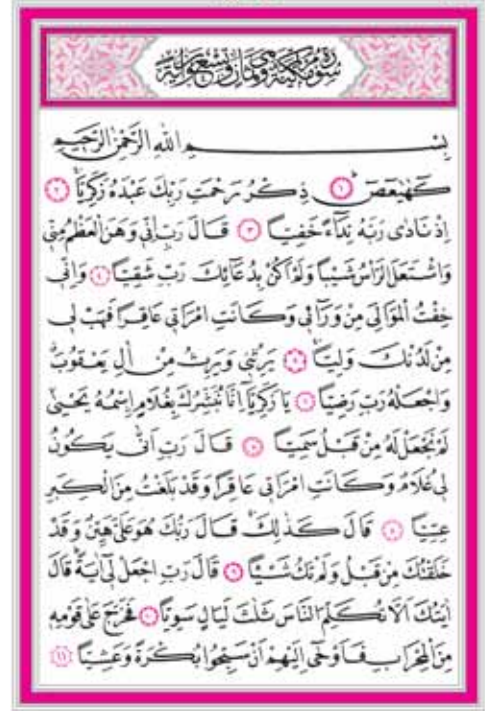 سُورَةُ مَرْيَمَ مَكِّيَّةٌ وَهِيَ ثَمَانٍ وَتِسْعُونَ اٰيَةً
بِسْمِ اللّٰهِ الرَّحْمٰنِ الرَّحِيمِ
كٓهٰيٰعٓصٓ ﴿١﴾ ذِكْرُ رَحْمَتِ رَبِّكَ عَبْدَهُ زَكَرِيَّاۚ ﴿٢﴾
اِذْ نَادٰى رَبَّهُ نِدَٓاءً خَفِيًّا ﴿٣﴾ قَالَ رَبِّ اِنّٖى وَهَنَ الْعَظْمُ مِنّٖى
وَاشْتَعَلَ الرَّاْسُ شَيْبًا وَلَمْ اَكُنْ بِدُعَٓائِكَ رَبِّ شَقِيًّا ﴿٤﴾ وَاِنّٖى
خِفْتُ الْمَوَالِىَ مِنْ وَرَٓاءٖى وَكَانَتِ امْرَاَتٖى عَاقِرًا فَهَبْ لٖى
مِنْ لَدُنْكَ وَلِيًّاۙ ﴿٥﴾ يَرِثُنٖى وَيَرِثُ مِنْ اٰلِ يَعْقُوبَۗ
وَاجْعَلْهُ رَبِّ رَضِيًّا ﴿٦﴾ يَا زَكَرِيَّٓا اِنَّا نُبَشِّرُكَ بِغُلَامٍ اِسْمُهُ يَحْيٰىۙ
لَمْ نَجْعَلْ لَهُ مِنْ قَبْلُ سَمِيًّا ﴿٧﴾ قَالَ رَبِّ اَنّٰى يَكُونُ
لٖى غُلَامٌ وَكَانَتِ امْرَاَتٖى عَاقِرًا وَقَدْ بَلَغْتُ مِنَ الْكِبَرِ
عِتِيًّا ﴿٨﴾ قَالَ كَذٰلِكَۚ قَالَ رَبُّكَ هُوَ عَلَىَّ هَيِّنٌ وَقَدْ
خَلَقْتُكَ مِنْ قَبْلُ وَلَمْ تَكُ شَيْئًا ﴿٩﴾ قَالَ رَبِّ اجْعَلْ لٖٓى اٰيَةًۜ قَالَ
اٰيَتُكَ اَلَّا تُكَلِّمَ النَّاسَ ثَلٰثَ لَيَالٍ سَوِيًّا ﴿١٠﴾ فَخَرَجَ عَلٰى قَوْمِهٖ
مِنَ الْمِحْرَابِ فَاَوْحٰٓى اِلَيْهِمْ اَنْ سَبِّحُوا بُكْرَةً وَعَشِيًّا ﴿١١﴾